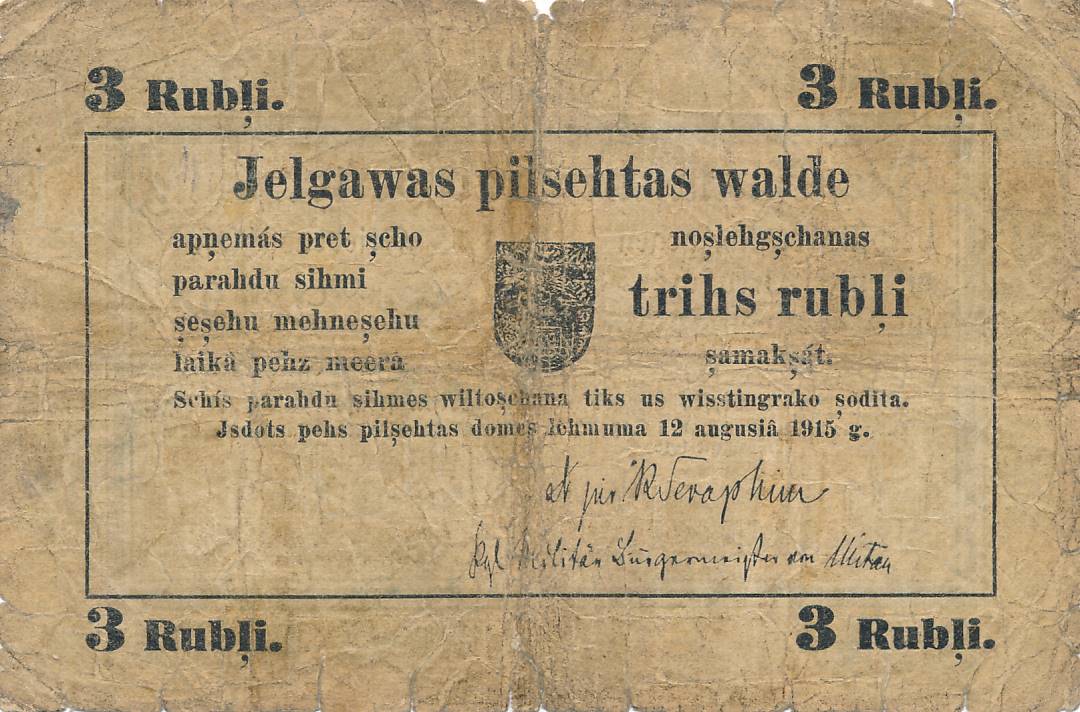 3 Rubļi. 3 Rubļi.
Jelgawas pilsehtas walde
apņemás pret şcho
parahdu sihmi
şeşehu mehneşehu
laikâ pehz meera
noşlehgşchanas
trihs rubļi
şamakşát.
Schís parahdu sihmes wiltoşchana tiks us wisstingrako şodita.
Jsdots pehs pilşehtas domes lehmuma 12 augusiâ 1915 g.
Seraphim
Kgl Militär Bürgermeister von Mitau
3 Rubļi. 3 Rubļi.